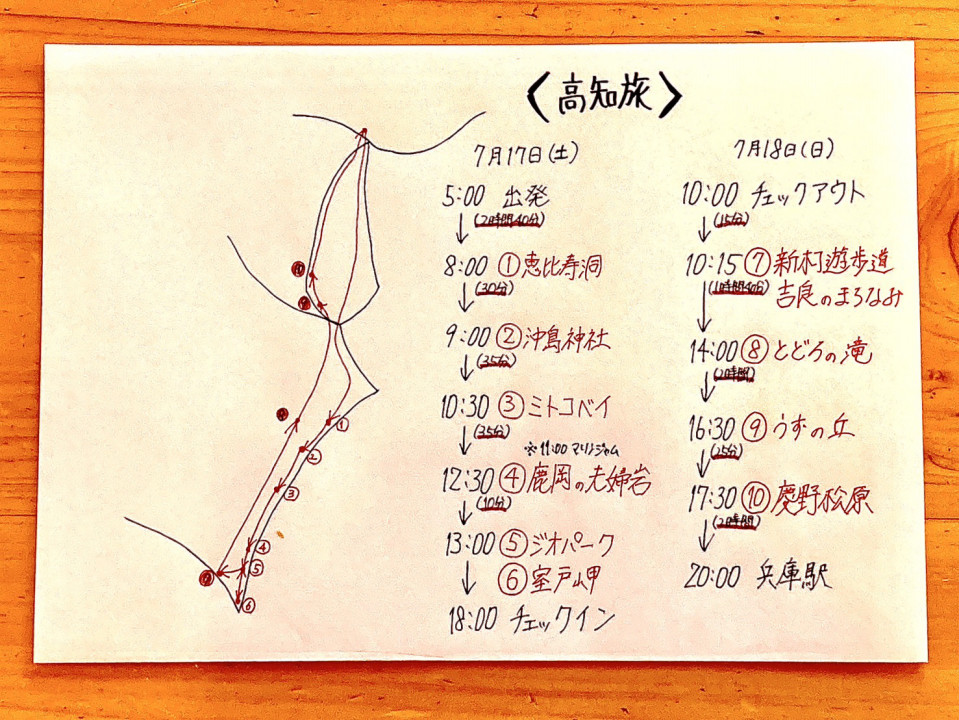 〈高知旅〉
7月17日(土)
5:00 出発
(2時間40分)
8:00 ①恵比寿洞
(30分)
9:00 ②沖島神社
(35分)
10:30 ③ミトコベイ
(35分)
※11:00 マリンジャム
12:30 ④鹿岡の夫婦岩
(10分)
13:00 ⑤ジオパーク
⑥室戸岬
18:00 チェックイン
7月18日(日)
10:00 チェックアウト
(15分)
10:15 ⑦新村遊歩道
吉良のまろなみ
(1時間40分)
14:00 ⑧とどろの滝
(2時間)
16:30 ⑨うずの丘
(25分)
17:30 ⑩慶野松原
(2時間)
20:00 兵庫駅
⑩
⑨
⑧
①
②
③
④
⑤
⑦
⑥